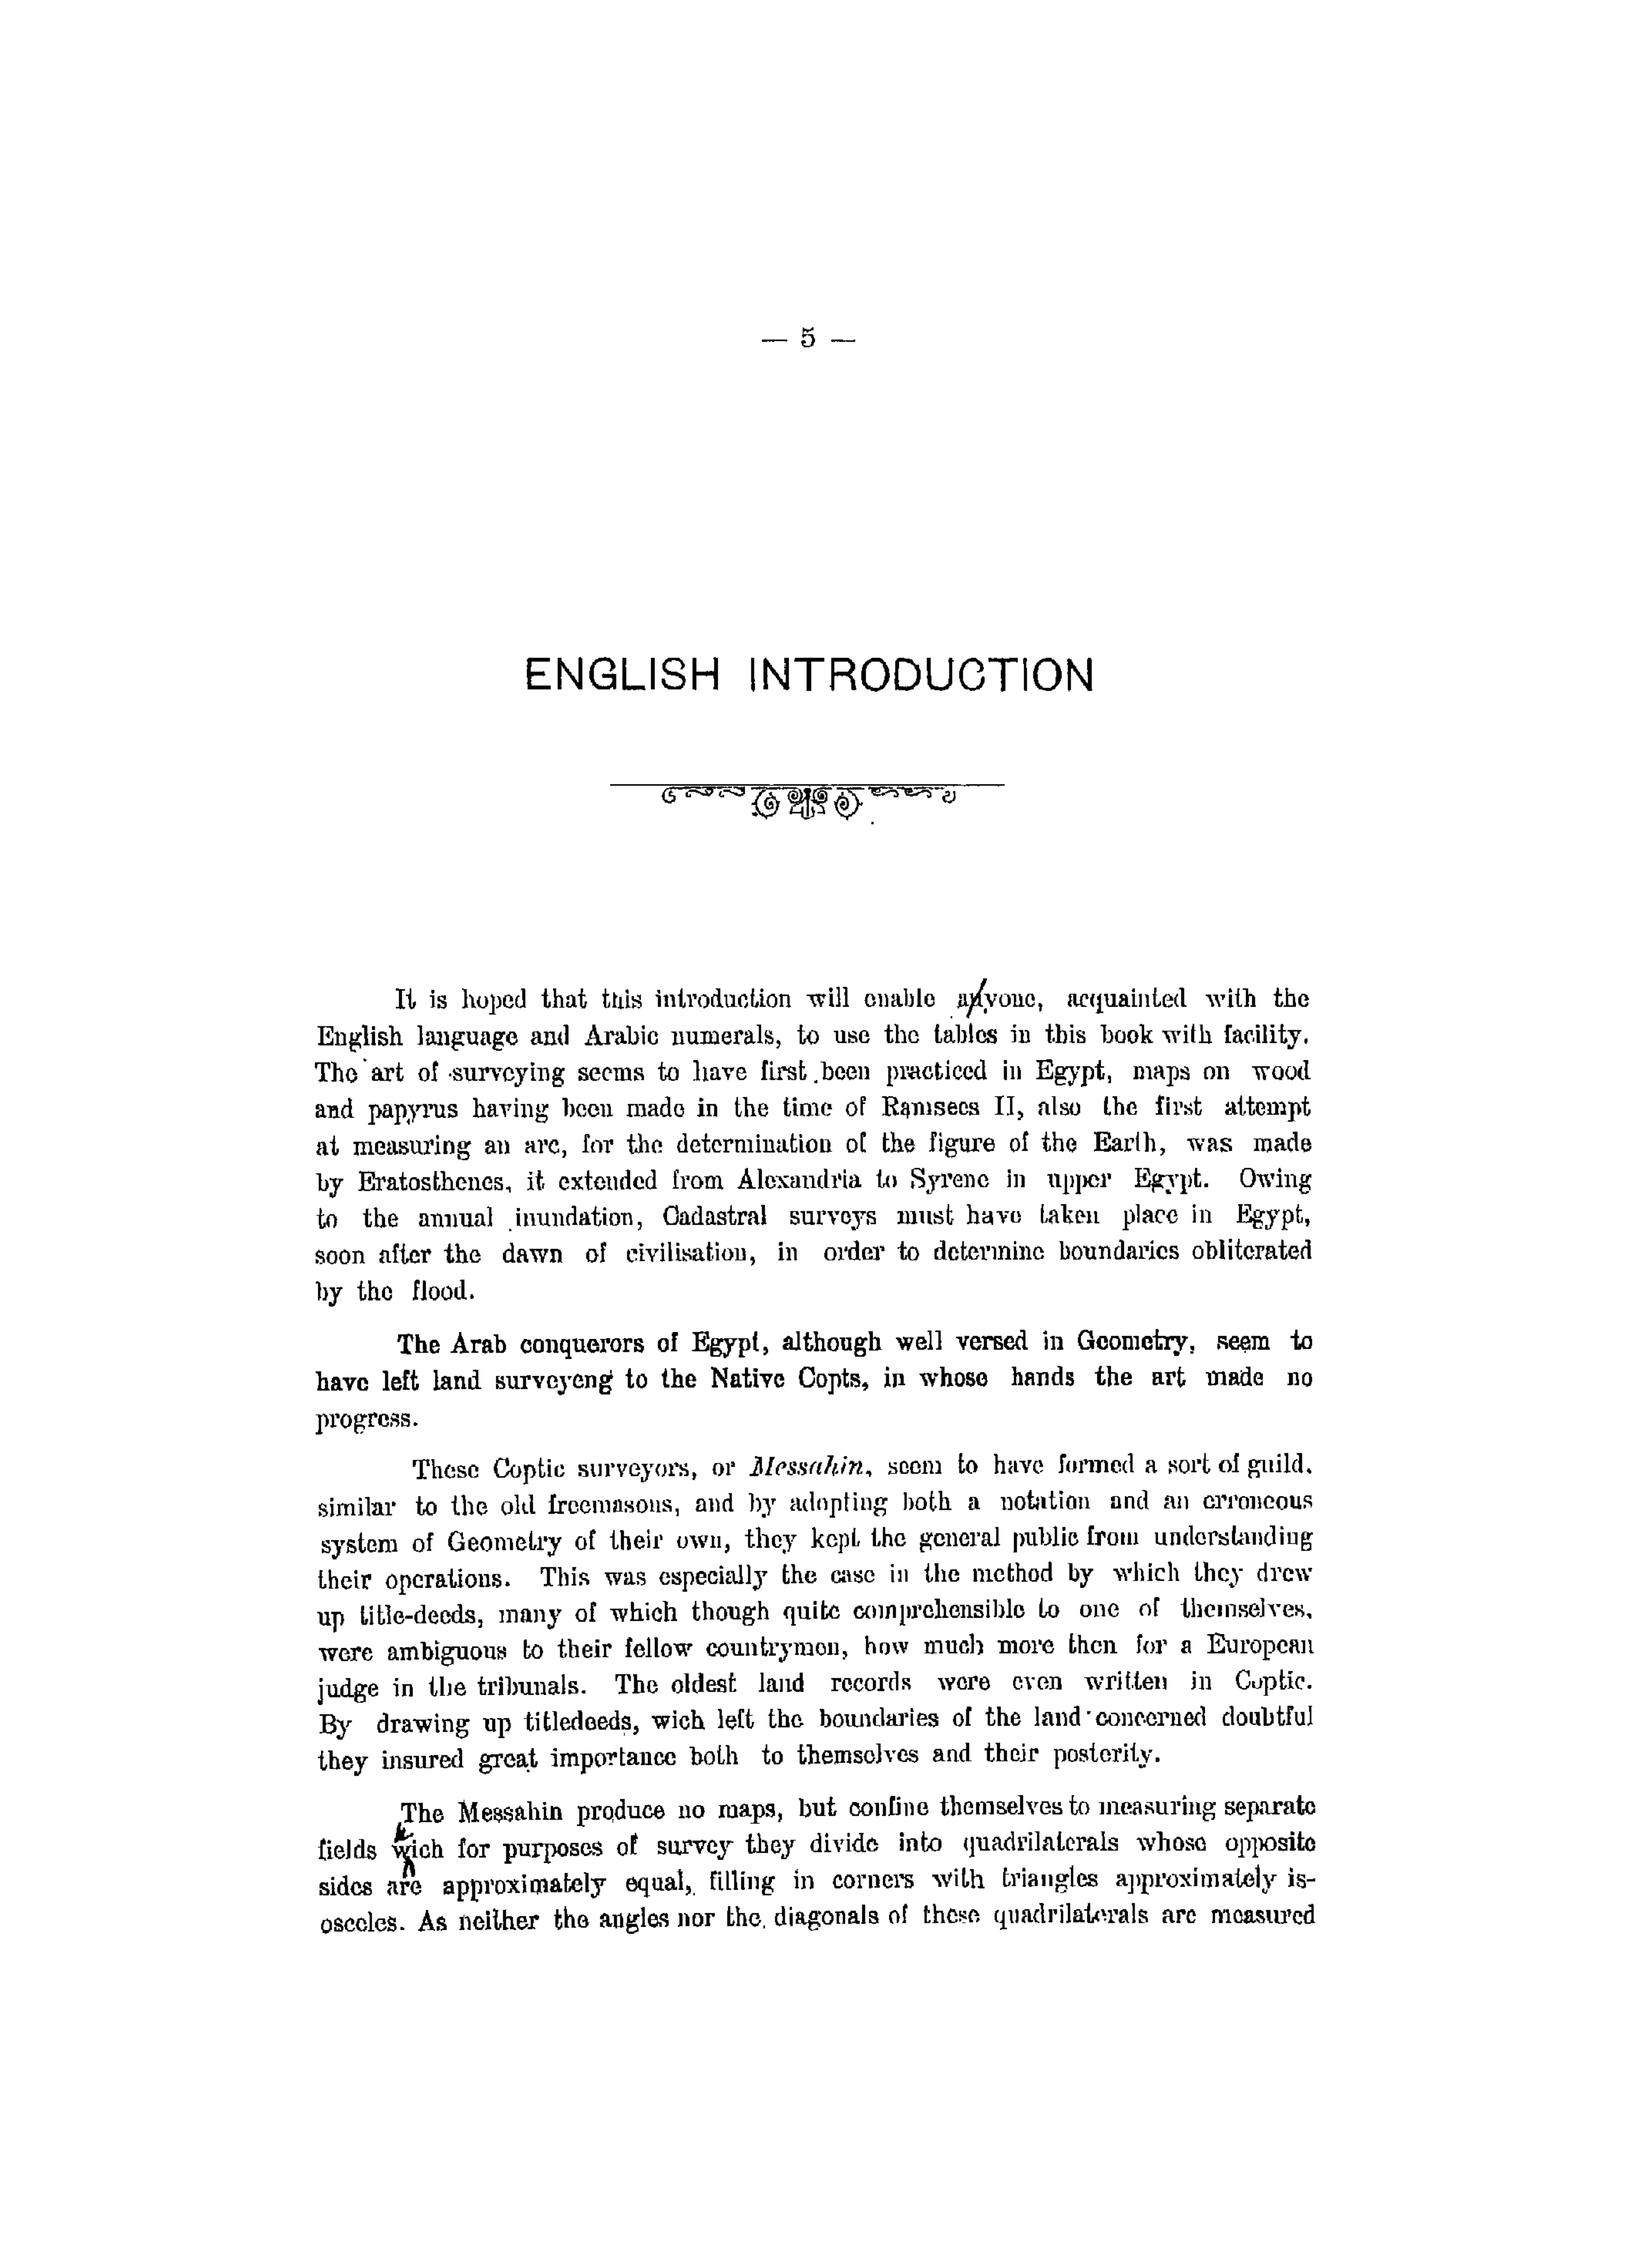 — 5 —
ENGLISH INTRODUCTION
It is hoped that this introduction will enable anyone, acquainted with the
English language and Arabic numerals, to use the tables in this book with facility.
The art of surveying seems to have first been practiced in Egypt, maps on wood
and papyrus having been made in the time of Ramsees II, also the first attempt
at measuring an arc, for the determination of the figure of the Earth, was made
by Eratosthenes, it extended from Alexandria to Syrene in upper Egypt. Owing
to the annual inundation, Cadastral surveys must have taken place in Egypt,
soon after the dawn of civilisation, in order to determine boundaries obliterated
by the flood.
The Arab conquerors of Egypt, although well versed in Geometry, seem to
have left land surveyeng to the Native Copts, in whose hands the art made no
progress.
These Coptic surveyors, or Messahin, seem to have formed a sort of guild,
similar to the old freemasons, and by adopting both a notation and an erroneous
system of Geometry of their own, they kept the general public from understanding
their operations. This was especially the case in the method by which they drew
up title-deeds, many of which though quite comprehensible to one of themselves,
were ambiguous to their fellow countrymen, how much more then for a European
judge in the tribunals. The oldest land records were even written in Coptic.
By drawing up titledeeds, wich left the boundaries of the land concerned doubtful
they insured great importance both to themselves and their posterity.
The Messahin produce no maps, but confine themselves to measuring separate
fields wich for purposes of survey they divide into quadrilaterals whose opposite
sides are approximately equal, filling in corners with triangles approximately is-
osceles. As neither the angles nor the diagonals of these quadrilaterals are measured